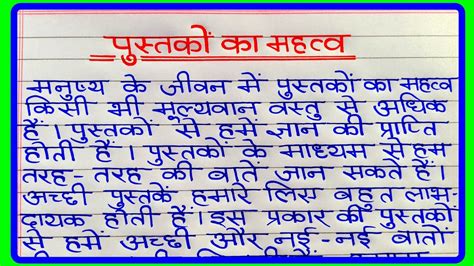 पुस्तकों का महत्व
मनुष्य के जीवन में पुस्तकों का महत्व
किसी भी मूल्यवान वस्तु से अधिक
हैं । पुस्तकों से हमें ज्ञान की प्राप्ति
होती हैं । पुस्तकों के माध्यम से हम
तरह- तरह की बातें जान सकते हैं।
अच्छी पुस्तकें हमारे लिए बहुत लाभ-
दायक होती हैं। इस प्रकार की पुस्तकों
से हमें अच्छी और नई-नई बातों